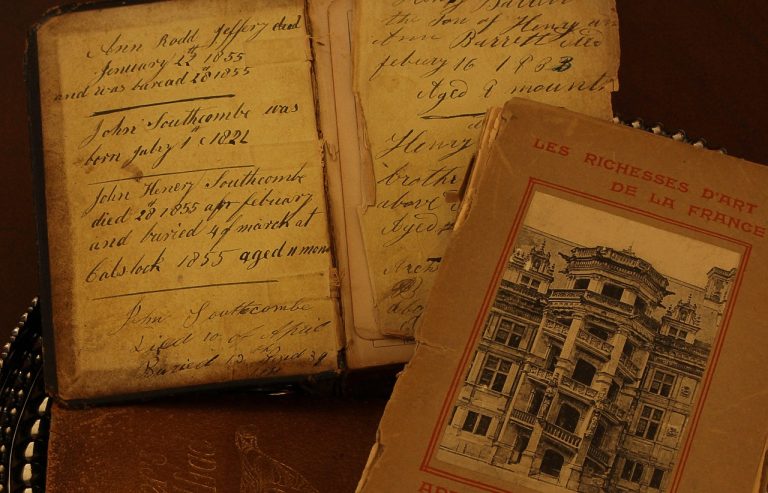 Ann Rodd Jeffery died
January 22th 1855
and was buread 28 1855
John Southcombe was
born july 1st 1821
John Henery Southcombe
died 28 1855 apr febuary
and buried 4 of march at
Calstock 1855 aged 11 mon
John Southcombe
Died 10 of April
Buried 13
Henry Barrett
the Son of Henry an
Ann Barrett died
febuary 16 1883
Aged 8 mounth
Henry
brothe
above
Aged
LES RICHESSES D'ART
DE LA FRANCE